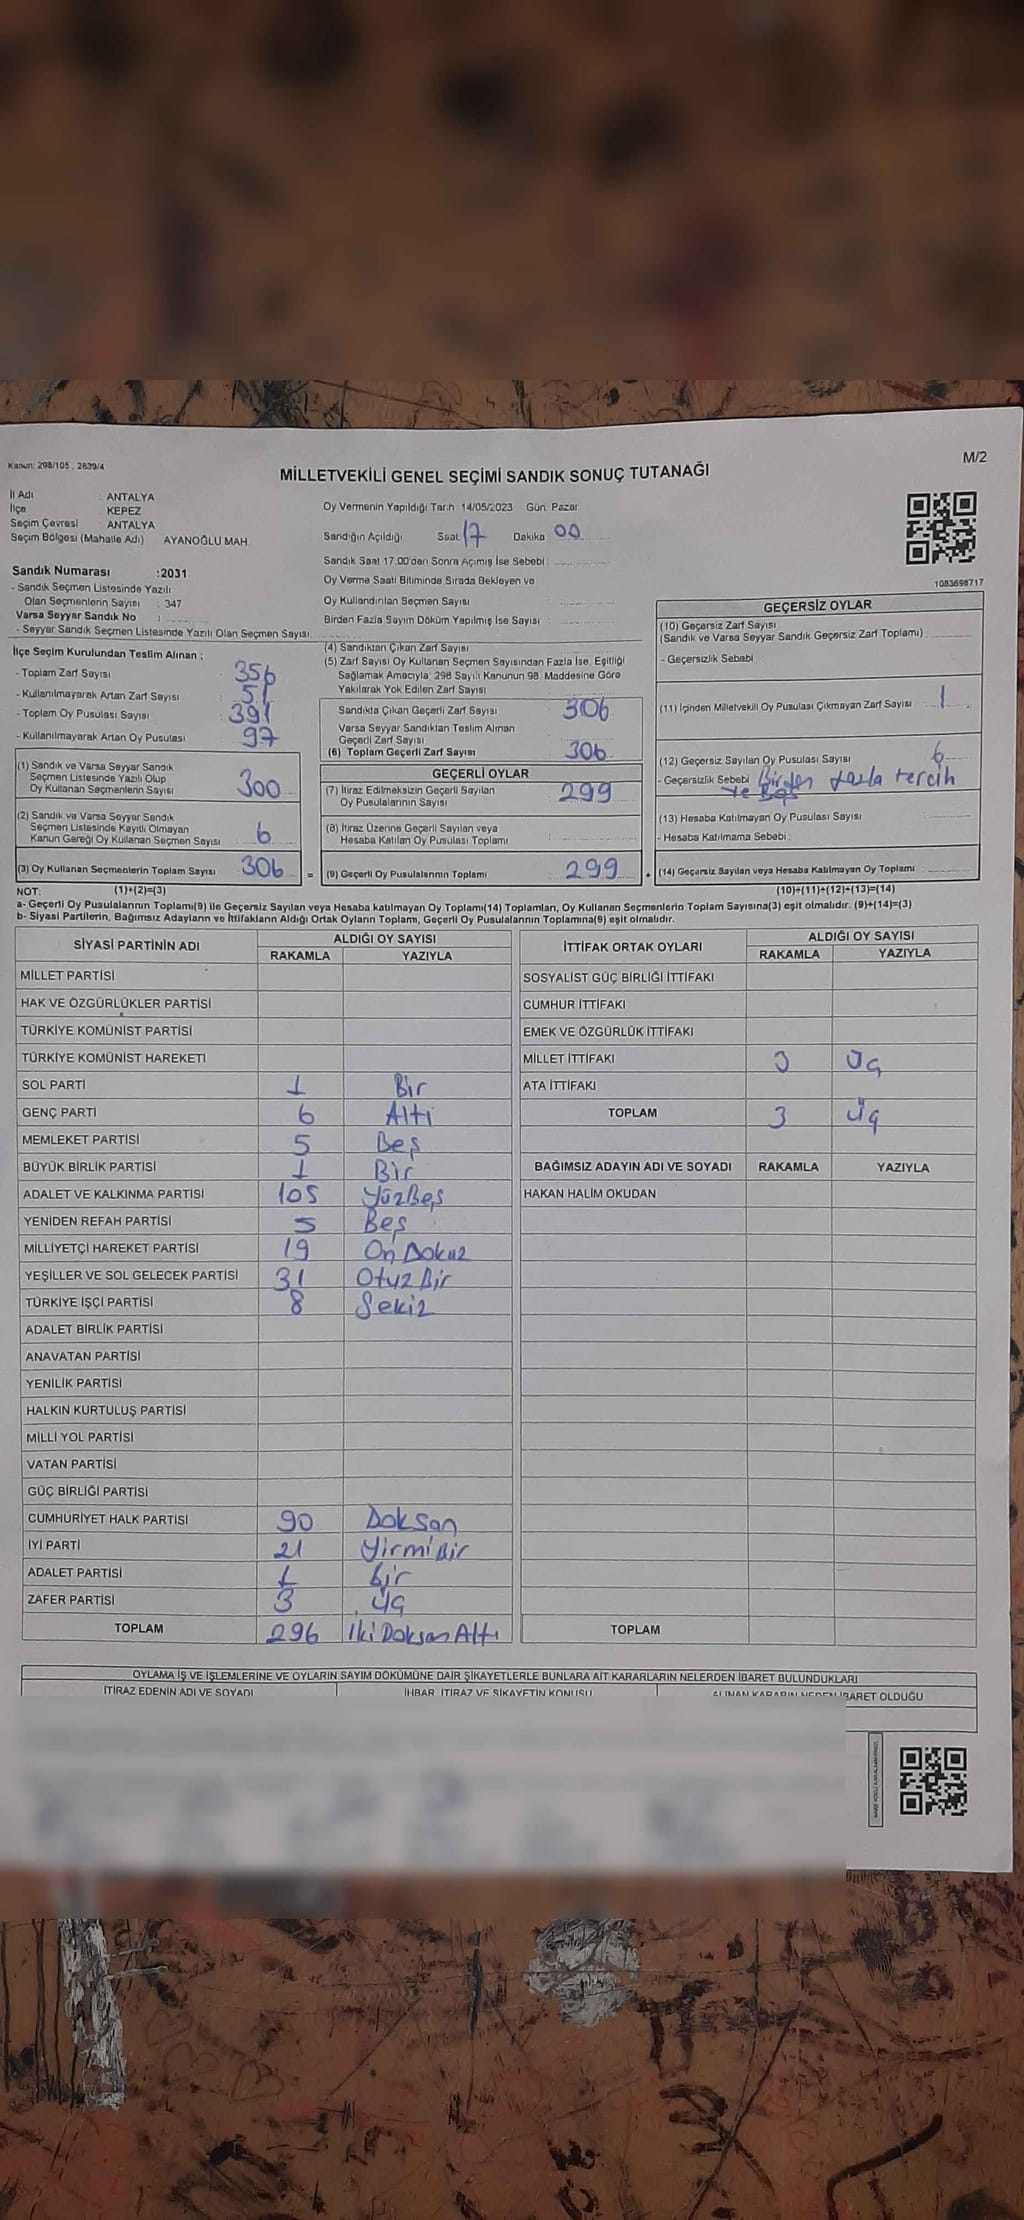 Kanun: 298/105 , 2839/4
MİLLETVEKİLİ GENEL SEÇİMİ SANDIK SONUÇ TUTANAĞI
M/2
İl Adı : ANTALYA
İlçe KEPEZ
Seçim Çevresi : ANTALYA
Seçim Bölgesi (Mahalle Adı) AYANOĞLU MAH.
Oy Vermenin Yapıldığı Tarih 14/05/2023 Gün: Pazar
Sandığın Açıldığı Saat 17 Dakika 00
Sandık Saat 17.00'den Sonra Açımış İse Sebebi :
Oy Verme Saati Bitiminde Sırada Bekleyen ve
Oy Kullandırılan Seçmen Sayısı
Birden Fazla Sayım Döküm Yapılmış İse Sayısı :
1083698717
Sandık Numarası :2031
- Sandık Seçmen Listesinde Yazılı
Olan Seçmenlerin Sayısı : 347
Varsa Seyyar Sandık No :
- Seyyar Sandık Seçmen Listesinde Yazılı Olan Seçmen Sayısı
İlçe Seçim Kurulundan Teslim Alınan ;
- Toplam Zarf Sayısı : 356
- Kullanılmayarak Artan Zarf Sayısı : 51
- Toplam Oy Pusulası Sayısı : 391
- Kullanılmayarak Artan Oy Pusulası : 97
(1) Sandık ve Varsa Seyyar Sandık
Seçmen Listesinde Yazılı Olup
Oy Kullanan Seçmenlerin Sayısı 300
(2) Sandık ve Varsa Seyyar Sandık
Seçmen Listesinde Kayıtlı Olmayan
Kanun Gereği Oy Kullanan Seçmen Sayısı 6
(3) Oy Kullanan Seçmenlerin Toplam Sayısı 306 =
(4) Sandıktan Çıkan Zarf Sayısı
(5) Zarf Sayısı Oy Kullanan Seçmen Sayısından Fazla İse, Eşitliği
Sağlamak Amacıyla; 298 Sayılı Kanunun 98. Maddesine Göre
Yakılarak Yok Edilen Zarf Sayısı
Sandıkta Çıkan Geçerli Zarf Sayısı 306
Varsa Seyyar Sandıktan Teslim Alınan
Geçerli Zarf Sayısı
(6) Toplam Geçerli Zarf Sayısı 306
GEÇERLİ OYLAR
(7) İtiraz Edilmeksizin Geçerli Sayılan
Oy Pusulalarının Sayısı 299
(8) İtiraz Üzerine Geçerli Sayılan veya
Hesaba Katılan Oy Pusulası Toplamı
(9) Geçerli Oy Pusulalarının Toplamı 299 +
GEÇERSİZ OYLAR
(10) Geçersiz Zarf Sayısı
(Sandık ve Varsa Seyyar Sandık Geçersiz Zarf Toplamı) :
- Geçersizlik Sebebi
(11) İçinden Milletvekili Oy Pusulası Çıkmayan Zarf Sayısı 1
(12) Geçersiz Sayılan Oy Pusulası Sayısı 6
- Geçersizlik Sebebi Birden fazla tercih
ve Boş
(13) Hesaba Katılmayan Oy Pusulası Sayısı
- Hesaba Katılmama Sebebi :
(14) Geçersiz Sayılan veya Hesaba Katılmayan Oy Toplamı
NOT: (1)+(2)=(3) (10)+(11)+(12)+(13)=(14)
a- Geçerli Oy Pusulalarının Toplamı(9) ile Geçersiz Sayılan veya Hesaba katılmayan Oy Toplamı(14) Toplamları, Oy Kullanan Seçmenlerin Toplam Sayısına(3) eşit olmalıdır. (9)+(14)=(3)
b- Siyasi Partilerin, Bağımsız Adayların ve İttifakların Aldığı Ortak Oyların Toplamı, Geçerli Oy Pusulalarının Toplamına(9) eşit olmalıdır.
SİYASİ PARTİNİN ADI ALDIĞI OY SAYISI
RAKAMLA YAZIYLA
MİLLET PARTİSİ
HAK VE ÖZGÜRLÜKLER PARTİSİ
TÜRKİYE KOMÜNİST PARTİSİ
TÜRKİYE KOMÜNİST HAREKETİ
SOL PARTİ 1 Bir
GENÇ PARTİ 6 Altı
MEMLEKET PARTİSİ 5 Beş
BÜYÜK BİRLİK PARTİSİ 1 Bir
ADALET VE KALKINMA PARTİSİ 105 YüzBeş
YENİDEN REFAH PARTİSİ 5 Beş
MİLLİYETÇİ HAREKET PARTİSİ 19 On Dokuz
YEŞİLLER VE SOL GELECEK PARTİSİ 31 Otuz Bir
TÜRKİYE İŞÇİ PARTİSİ 8 Sekiz
ADALET BİRLİK PARTİSİ
ANAVATAN PARTİSİ
YENİLİK PARTİSİ
HALKIN KURTULUŞ PARTİSİ
MİLLİ YOL PARTİSİ
VATAN PARTİSİ
GÜÇ BİRLİĞİ PARTİSİ
CUMHURİYET HALK PARTİSİ 90 Doksan
İYİ PARTİ 21 Yirmi Bir
ADALET PARTİSİ 1 Bir
ZAFER PARTİSİ 3 Üç
TOPLAM 296 İki Doksan Altı
İTTİFAK ORTAK OYLARI ALDIĞI OY SAYISI
RAKAMLA YAZIYLA
SOSYALİST GÜÇ BİRLİĞİ İTTİFAKI
CUMHUR İTTİFAKI
EMEK VE ÖZGÜRLÜK İTTİFAKI
MİLLET İTTİFAKI 3 Üç
ATA İTTİFAKI
TOPLAM 3 Üç
BAĞIMSIZ ADAYIN ADI VE SOYADI RAKAMLA YAZIYLA
HAKAN HALİM OKUDAN
TOPLAM
OYLAMA İŞ VE İŞLEMLERİNE VE OYLARIN SAYIM DÖKÜMÜNE DAİR ŞİKAYETLERLE BUNLARA AİT KARARLARIN NELERDEN İBARET BULUNDUKLARI
İTİRAZ EDENİN ADI VE SOYADI İHBAR, İTİRAZ VE ŞİKAYETİN KONUSU ALINAN KARARIN NEDEN İBARET OLDUĞU